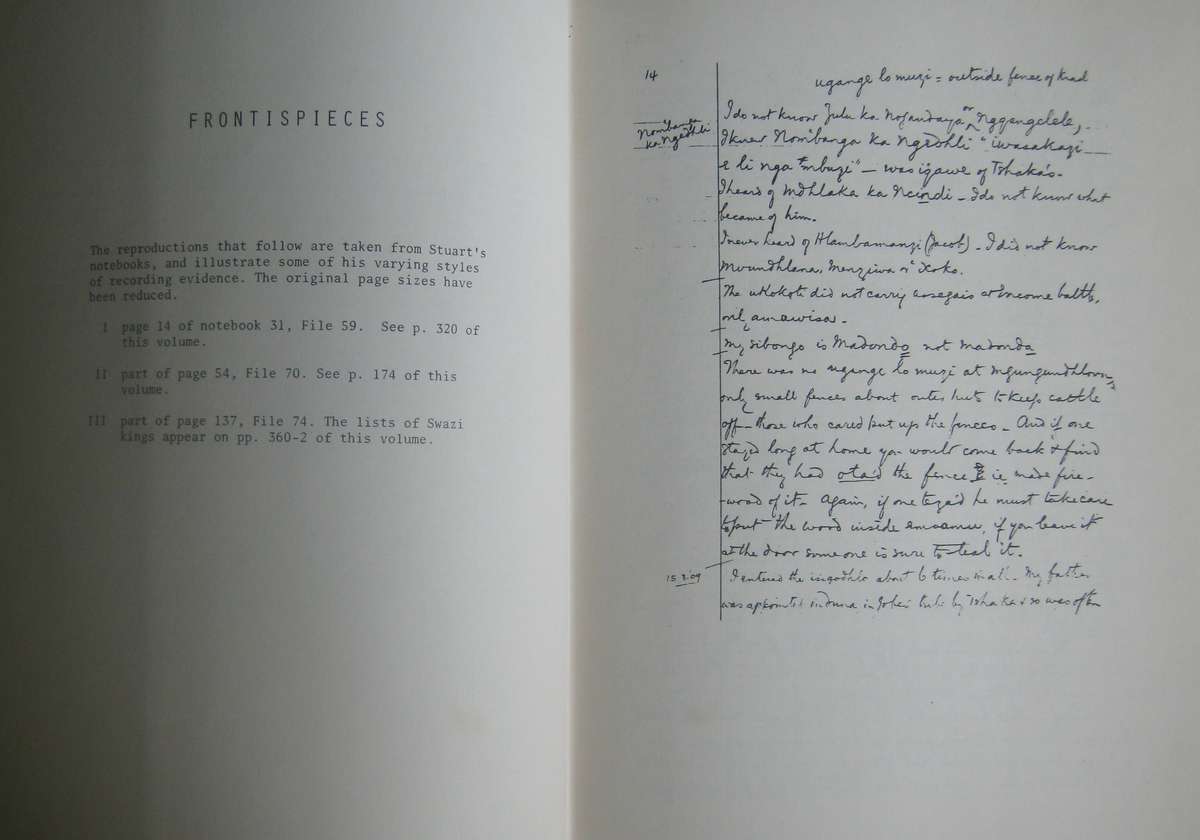 FRONTISPIECES
The reproductions that follow are taken from Stuart's
notebooks, and illustrate some of his varying styles
of recording evidence. The original page sizes have
been reduced.
I page 14 of notebook 31, File 59. See p. 320 of
this volume.
II part of page 54, File 70. See p. 174 of this
volume.
III part of page 137, File 74. The lists of Swazi
kings appear on pp. 360-2 of this volume.
14
ugange lo muzi = outside fence of kraal
Nombanga
ka Ngedhli
I do not know Zulu ka Nogandaya or Ngqengelele,
I knew Nombanga ka Ngedhli "iwasakazi
e li nga 'mbuzi" – was igawe of Tshaka's.
I heard of Mdhlaka ka Ncindi – I do not know what
became of him.
I never heard of Hlambamanzi (Jacob) – I did not know
Mvundhlana, Menziwa or Xoko.
The uKokoti did not carry assegais at Income battle,
only amawisa.
My sibongo is Madondo not Madonda
There was no ugange lo muzi at Mgungundhlovu,
only small fences about outer huts to keep cattle
off – those who cared put up the fences – And if one
stayed long at home you would come back & find
that they had ota'd the fence ie. made fire-
-wood of it – Again, if one teza'd he must take care
to put the wood inside emsamu, if you leave it
at the door someone is sure to steal it.
15.2.09
I entered the isigodhlo about 6 times in all – My father
was appointed induna in by Tshaka & so was often